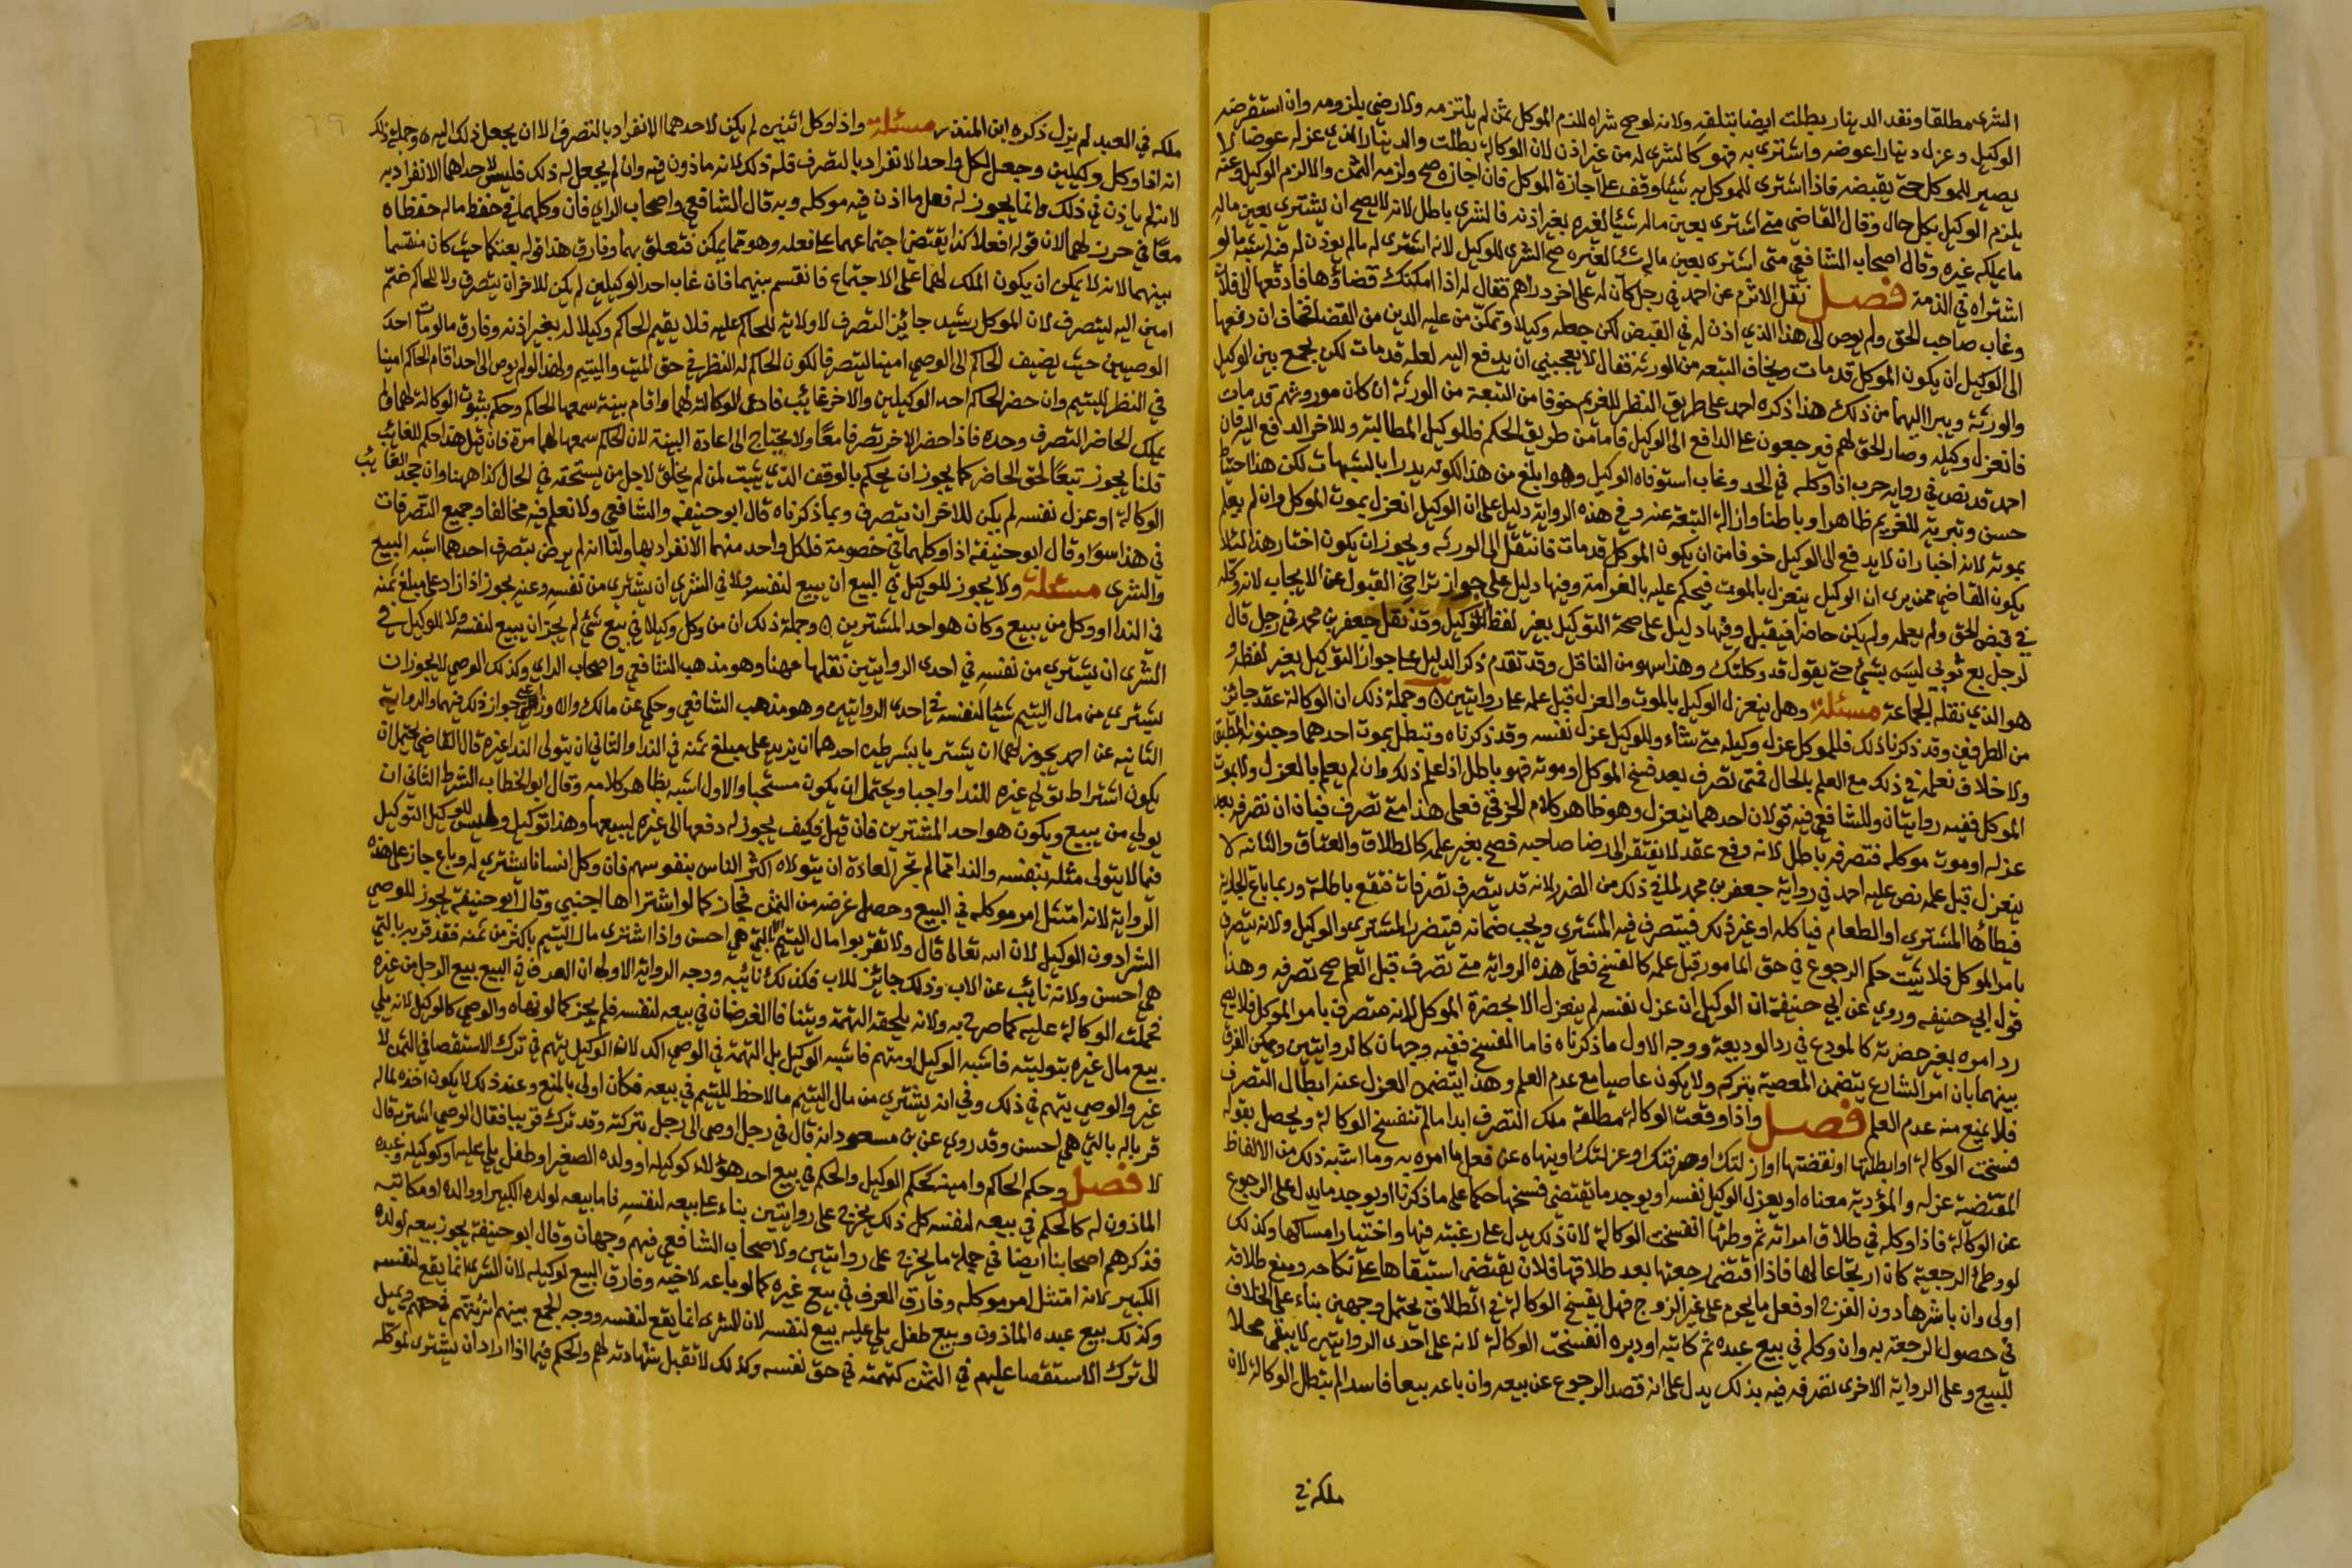 الشرى مطلقا ونقد الدينار بطلت ايضا بتلفه ولانه لوصح شراه للزم الموكل ثمن لم يلتزمه ولا رضي بلزومه وان استقرضه
الوكيل وعزل دينارا عوضه واشترى به فهو كالشرى له من غير اذن لان الوكالة بطلت والدينار الذي عزله عوضا لا
يصير للموكل حتى يقبضه فاذا اشترى للموكل به شيئا وقف على اجازة الموكل فان اجازه صح ولزمه الثمن والا لزم الوكيل وعنه
يلزم الوكيل بكل حال وقال القاضي متى اشترى بعين ماله شيئا لغيره بغير اذنه فالشرى باطل لانه لا يصح ان يشتري بعين ماله
ما يملكه غيره وقال اصحاب الشافعي متى اشترى بعين ماله شيئا لغيره صح الشرى للوكيل لانه اشترى له ما لم يوذن له فيه اشبه ما لو
اشتراه في الذمة فصل نقل الاثرم عن احمد في رجل كان له على اخر دراهم فقال له اذا امكنك قضاؤها فادفعها الى فلان
وغاب صاحب الحق ولم يوص الى هذا الذي اذن له في القبض لكن جعله وكيلا وتمكن من عليه الدين من القضا فخاف ان دفعها
الى الوكيل ان يكون الموكل قد مات ويخاف التبعه من الورثه فقال لا يعجبني ان يدفع اليه لعله قد مات لكن يجمع بين الوكيل
والورثه ويبرا اليهما من ذلك هذا ذكره احمد على طريق النظر للغريم خوفا من التبعة من الورثة ان كان موروثهم قد مات
فانعزل وكيله وصار الحق لهم فيرجعون على الدافع الى الوكيل فاما من طريق الحكم فللوكيل المطالبة وللاخر الدفع اليه فان
احمد قد نص في رواية حرب اذا وكله في الحد وغاب استوفاه الوكيل وهو ابلغ من هذا لكونه يدرا بالشبهات لكن هذا احتياط
حسن وتبرية للغريم ظاهرا وباطنا وازالة التبعة عنه وفي هذه الرواية دليل على ان الوكيل انعزل بموت الموكل وان لم يعلم
بموته لانه اختار ان لا يدفع الى الوكيل خوفا من ان يكون الموكل قد مات فانتقل الى الورثه ويجوز ان يكون اختار هذا لئلا
يكون القاضي ممن يرى ان الوكيل ينعزل بالموت فيحكم عليه بالغرامة وفيها دليل على جواز تراخي القبول عن الايجاب لانه وكله
في قبض الحق ولم يعلمه ولم يكن حاضرا فيقبل وفيها دليل على صحة التوكيل بغير لفظ التوكيل وقد نقل جعفر بن محمد في رجل قال
لرجل بع ثوبي ليس بشيء حتى يقول قد وكلتك وهذا سهو من الناقل وقد تقدم ذكر الدليل على جواز التوكيل بغير لفظه و
هو الذي نقله الجماعة مسئلة وهل ينعزل الوكيل بالموت والعزل قبل علمه على روايتين ٥ وجملة ذلك ان الوكالة عقد جائز
من الطرفين وقد ذكرنا ذلك فللموكل عزل وكيله متى شاء وللوكيل عزل نفسه وقد ذكرناه وتبطل بموت احدهما وجنونه المطبق
ولا خلاف نعلمه في ذلك مع العلم بالحال فمتى تصرف بعد فسخ الموكل او موته فهو باطل اذا علم ذلك وان لم يعلم بالعزل ولا بموت
الموكل ففيه روايتان وللشافعي فيه قولان احدهما ينعزل وهو ظاهر كلام الخرقي فعلى هذا متى تصرف فبان ان تصرفه بعد
عزله او موت موكله فتصرفه باطل لانه رفع عقد لا يفتقر الى رضا صاحبه فصح بغير علمه كالطلاق والعتاق والثانيه لا
ينعزل قبل علمه نص عليه احمد في رواية جعفر بن محمد لما في ذلك من الضرر لانه قد يتصرف تصرفات فتقع باطلة وربما باع الجارية
فيطأها المشتري او الطعام فياكله او غير ذلك فيتصرف فيه المشترى ويجب ضمانه فيتضرر المشترى والوكيل ولانه يتصرف
بامر الموكل فلا يثبت حكم الرجوع في حق المامور قبل علمه كالفسخ فعلى هذه الرواية متى تصرف قبل العلم صح تصرفه وهذا
قول ابي حنيفه وروي عن ابي حنيفة ان الوكيل ان عزل نفسه لم ينعزل الا بحضرة الموكل لانه متصرف بامر الموكل فلا يصح
رد امره بغير حضرته كالمودع في رد الوديعة ووجه الاول ما ذكرناه فاما الفسخ ففيه وجهان كالروايتين ويمكن الفرق
بينهما بان امر الشارع يتضمن المعصية بتركه ولا يكون عاصيا مع عدم العلم وهذا يتضمن العزل عنه ابطال التصرف
فلا يمنع منه عدم العلم فصل واذا وقعت الوكالة مطلقة ملك التصرف ابدا ما لم تنفسخ الوكالة ويحصل بقوله
فسخت الوكالة او ابطلتها او نقضتها او ازلتك او صرفتك او عزلتك او ينهاه عن فعل ما امره به وما اشبه ذلك من الالفاظ
المقتضية عزله والمؤدية معناه او يعزل الوكيل نفسه او يوجد ما يقتضي فسخها حكما على ما ذكرنا او يوجد ما يدل على الرجوع
عن الوكالة فاذا وكله في طلاق امراته ثم وطئها انفسخت الوكالة لان ذلك يدل على رغبته فيها واختيار امساكها وكذلك
لو وطئ الرجعية كان ارتجاعا لها فاذا اقتضى رجعتها بعد طلاقها فلان يقتضي استبقاها على نكاحه ومنع طلاقه
اولى وان باشرها دون الفرج او فعل ما يحرم على غير الزوج فهل يفسخ الوكالة في الطلاق يحتمل وجهين بناء على الخلاف
في حصول الرجعة به وان وكله في بيع عبده ثم كاتبه او دبره انفسخت الوكالة لانه على احدى الروايتين لا يبقى محلا
للبيع وعلى الرواية الاخرى تصرفه فيه بذلك يدل على انه قصد الرجوع عن بيعه وان باعه بيعا فاسدا لم يبطل الوكالة لان
ملكه في
ملكه في العبد لم يزل ذكره ابن المنذر مسئلة واذا وكل اثنين لم يكن لاحدهما الانفراد بالتصرف الا ان يجعل ذلك اليه ٥ وجملة ذلك
انه اذا وكل وكيلين وجعل لكل واحد الانفراد بالتصرف فله ذلك لانه ماذون فيه وان لم يجعل له ذلك فليس لاحداهما الانفراد به
لانه لم ياذن في ذلك وانما يجوز له فعل ما اذن فيه موكله وبه قال الشافعي واصحاب الراي فان وكلهما في حفظ ماله حفظاه
معا في حرز لهما لان قوله افعلا كذا يقتضي اجتماعهما على فعله وهو مما يمكن فتعلق بهما وفارق هذا قوله بعتكما حيث كان منقسما
بينهما لانه لا يمكن ان يكون الملك لهما على الاجتماع فانقسم بينهما فان غاب احد الوكيلين لم يكن للاخر ان يتصرف ولا للحاكم ضم
امين اليه ليتصرف لان الموكل رشيد جائز التصرف لا ولاية للحاكم عليه فلا يقيم الحاكم وكيلا له بغير اذنه وفارق ما لو مات احد
الوصيين حيث يضيف الحاكم الى الوصي امينا ليتصرفا لكون الحاكم له النظر في حق الميت واليتيم ولهذا لو لم يوص الى احد اقام الحاكم امينا
في النظر لليتيم وان حضر الحاكم احد الوكيلين والاخر غائب فادعى الوكالة لهما واقام بينة سمعها الحاكم وحكم بثبوت الوكالة لهما ولم
يملك الحاضر التصرف وحده فاذا حضر الاخر تصرفا معا ولا يحتاج الى اعادة البينة لان الحاكم سمعها لهما مرة فان قيل هذا حكم للغائب
قلنا يجوز تبعا لحق الحاضر كما يجوز ان يحكم بالوقف الذي يثبت لمن لم يخلق لاجل من يستحقه في الحال كذا ههنا وان جحد الغائب
الوكالة او عزل نفسه لم يكن للاخر ان يتصرف وبما ذكرناه قال ابو حنيفه والشافعي ولا نعلم فيه مخالفا وجميع التصرفات
في هذا سوا وقال ابو حنيفة اذا وكلهما في خصومة فلكل واحد منهما الانفراد بها ولنا انه لم يرض بتصرف احدهما اشبه البيع
والشرى مسئلة ولا يجوز للوكيل في البيع ان يبيع لنفسه ولا في الشرى ان يشترى من نفسه وعنه يجوز اذا زاد على مبلغ ثمنه
في الندا او وكل من يبيع وكان هو احد المشترين ٥ وجملة ذلك ان من وكل وكيلا في بيع شئ لم يجز ان يبيع لنفسه ولا للوكيل في
الشرى ان يشتري من نفسه في احدى الروايتين نقلها مهنا وهو مذهب الشافعي واصحاب الراي وكذلك الوصي لا يجوز ان
يشترى من مال اليتيم شيئا لنفسه في احدى الروايتين وهو مذهب الشافعي وحكي عن مالك والاوزاعي جواز ذلك فيهما والرواية
الثانيه عن احمد يجوز لهما ان يشتريا بشرطين احدهما ان يزيد على مبلغ ثمنه في الندا والثاني ان يتولى الندا غيره قال القاضي يحتمل ان
يكون اشتراط تولي غيره للندا واجبا ويحتمل ان يكون مستحبا والاول اشبه بظاهر كلامه وقال ابو الخطاب الشرط الثاني ان
يولي من يبيع ويكون هو احد المشترين فان قيل فكيف يجوز له دفعها الى غيره ليبيعها وهذا توكيل وليس للوكيل التوكيل
فيما لا يتولى مثله بنفسه والندا مما لم تجر العادة ان يتولاه اكثر الناس بنفوسهم فان وكل انسانا يشتري له وباع جاز على هذه
الرواية لانه امتثل امر موكله في البيع وحصل غرضه من الثمن فجاز كما لو اشتراها اجنبي وقال ابو حنيفة يجوز للوصي
الشرا دون الوكيل لان الله تعالى قال ولا تقربوا مال اليتيم الا بالتي هي احسن واذا اشترى مال اليتيم باكثر من ثمنه فقد قربه بالتي
هي احسن ولانه نائب عن الاب وذلك جائز للاب فكذلك نائبه ووجه الرواية الاولى ان العرف في البيع بيع الرجل من غيره
فحملت الوكالة عليه كما صرح به ولانه يلحقه التهمة ويتنافا الغرضان في بيعه لنفسه فلم يجز كما لو نهاه والوصي كالوكيل لانه يلي
بيع مال غيره بتوليته فاشبه الوكيل او متهم فاشبه الوكيل بل التهمة في الوصي اكد لان الوكيل يتهم في ترك الاستقصا في الثمن لا
غير والوصي يتهم في ذلك وفي انه يشتري من مال اليتيم ما لا حظ لليتيم في بيعه فكان اولى بالمنع وعند ذلك لا يكون اخذه لماله
قربا له بالتي هي احسن وقد روي عن بن مسعود انه قال في رجل اوصى الى رجل بتركته وقد ترك قريبا فقال الوصي اشتريه قال
لا فصل وحكم الحاكم وامينه كحكم الوكيل والحكم في بيع احد هؤلاء كوكيله او ولده الصغير او طفل يلي عليه او كوكيله وعبده
الماذون له كالحكم في بيعه لنفسه كل ذلك يخرج على روايتين بناء على بيعه لنفسه فاما بيعه لولده الكبير او والده او مكاتبه
فذكرهم اصحابنا ايضا في جملة ما يخرج على روايتين ولاصحاب الشافعي فيهم وجهان وقال ابو حنيفة يجوز بيعه لولده
الكبير لانه امتثل امر موكله وفارق العرف في بيع غيره كما لو باعه لاخيه وفارق البيع لوكيله لان الشرى انما يقع لنفسه
وكذلك بيع عبده المأذون وبيع طفل يلي عليه بيع لنفسه لان الشرى انما يقع لنفسه ووجه الجمع بينهم انه يتهم في حقهم ويميل
الى ترك الاستقصا عليهم في الثمن كتهمته في حق نفسه وكذلك لا تقبل شهادته لهم والحكم فيما اذا اراد ان يشترى لموكله